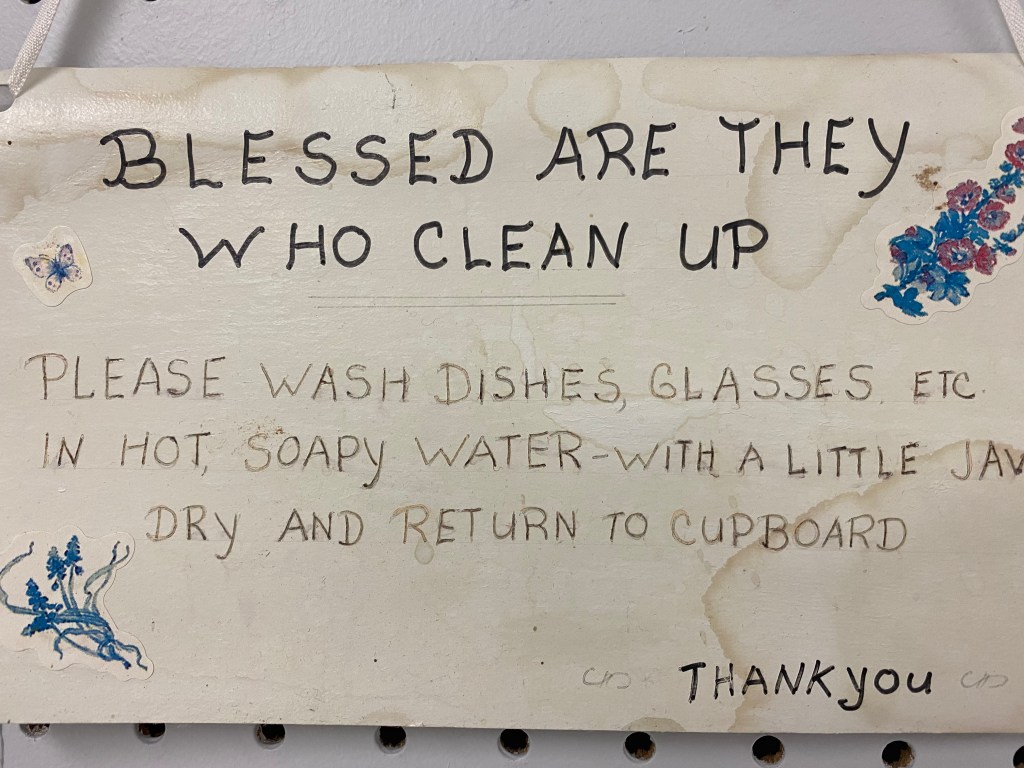 BLESSED ARE THEY
WHO CLEAN UP
PLEASE WASH DISHES, GLASSES, ETC.
IN HOT, SOAPY WATER-WITH A LITTLE JAV
DRY AND RETURN TO CUPBOARD
THANK YOU